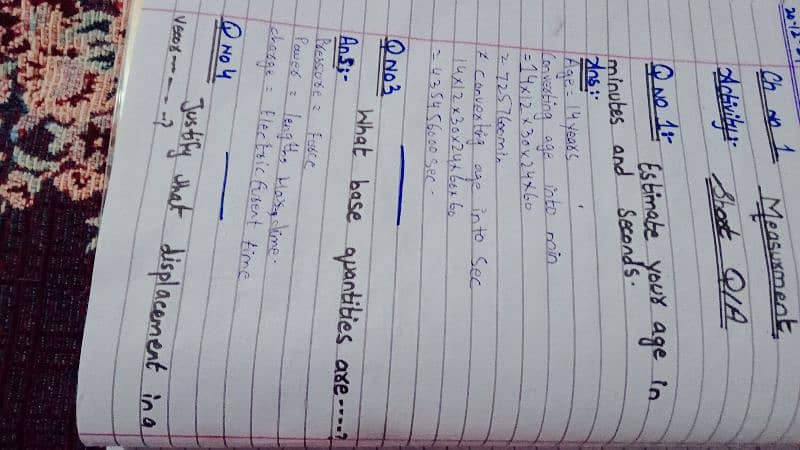 Ch no 1 Measurment
Activity:- Short Q/A
Q No 1:- Estimate your age in
minutes and seconds.
Ans:-
Age: 14 years
Converting age into min
= 14x12x30x24x60
= 7257600min
* converting age into sec
14x12x30x24x60x60
= 435456000 sec.
Q No 3
What base quantities are----?
Ans:-
Pressure = force
Power = length, mass, time.
charge = Electric current time
Q No 4
Justify what displacement in a